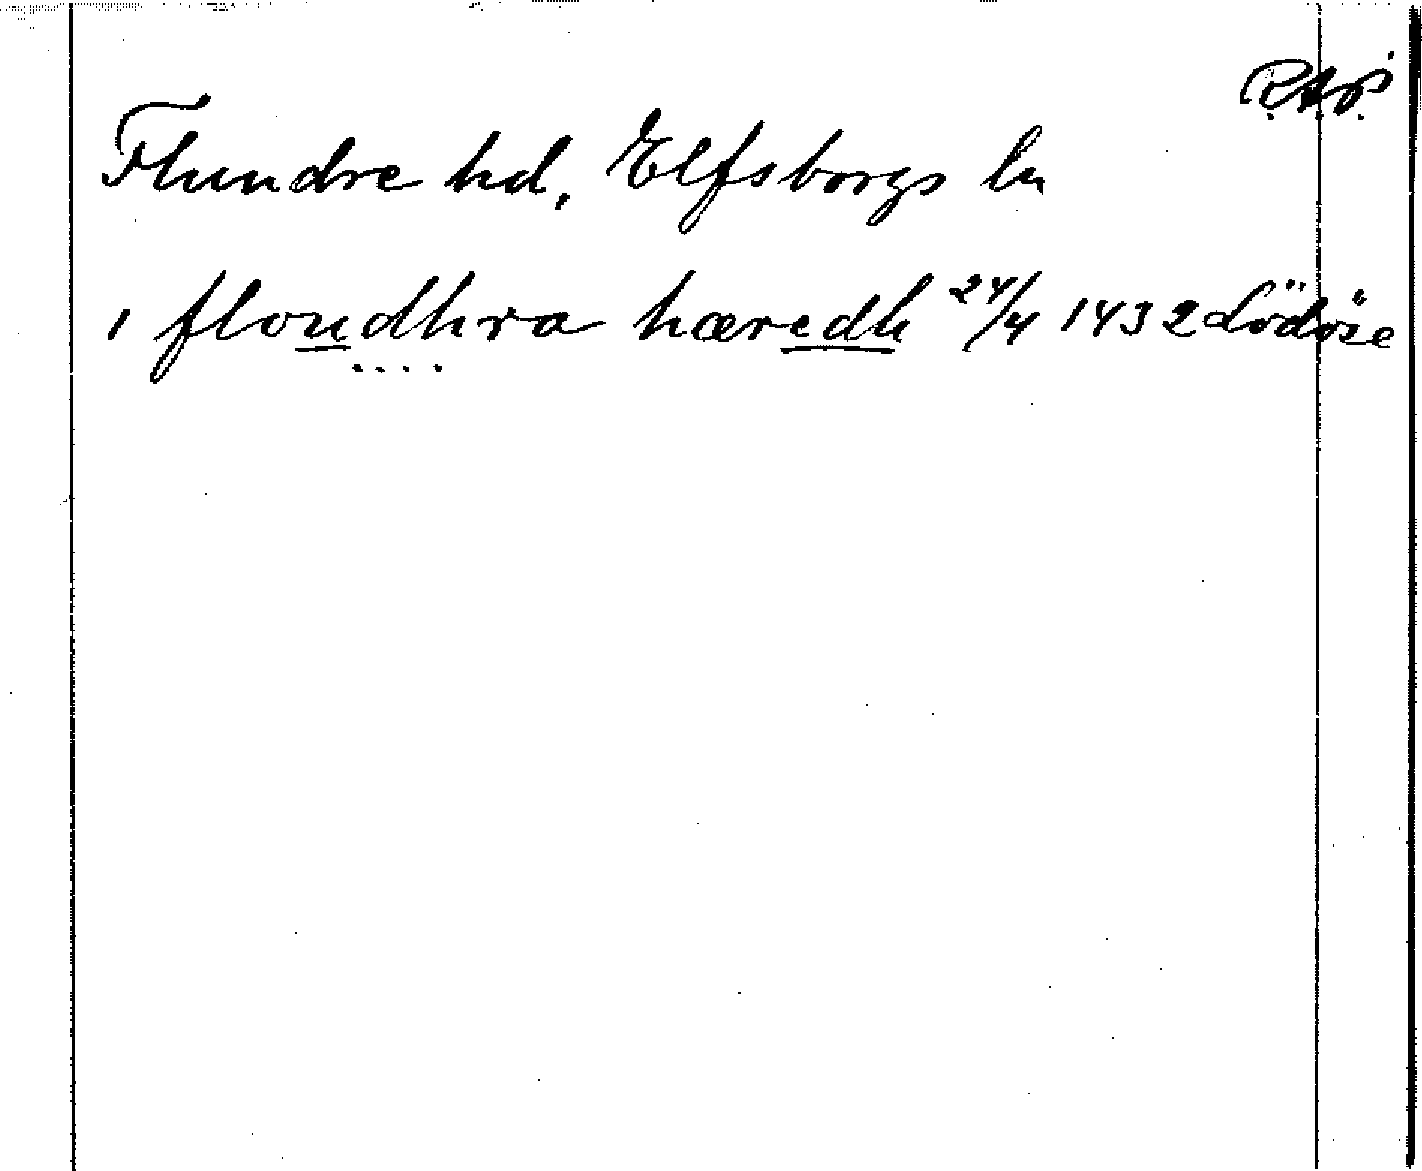 R.A.P.
Flundre hd, Elfsborgs ln
i floundhra hæredh 24/4 1432 Lödöse